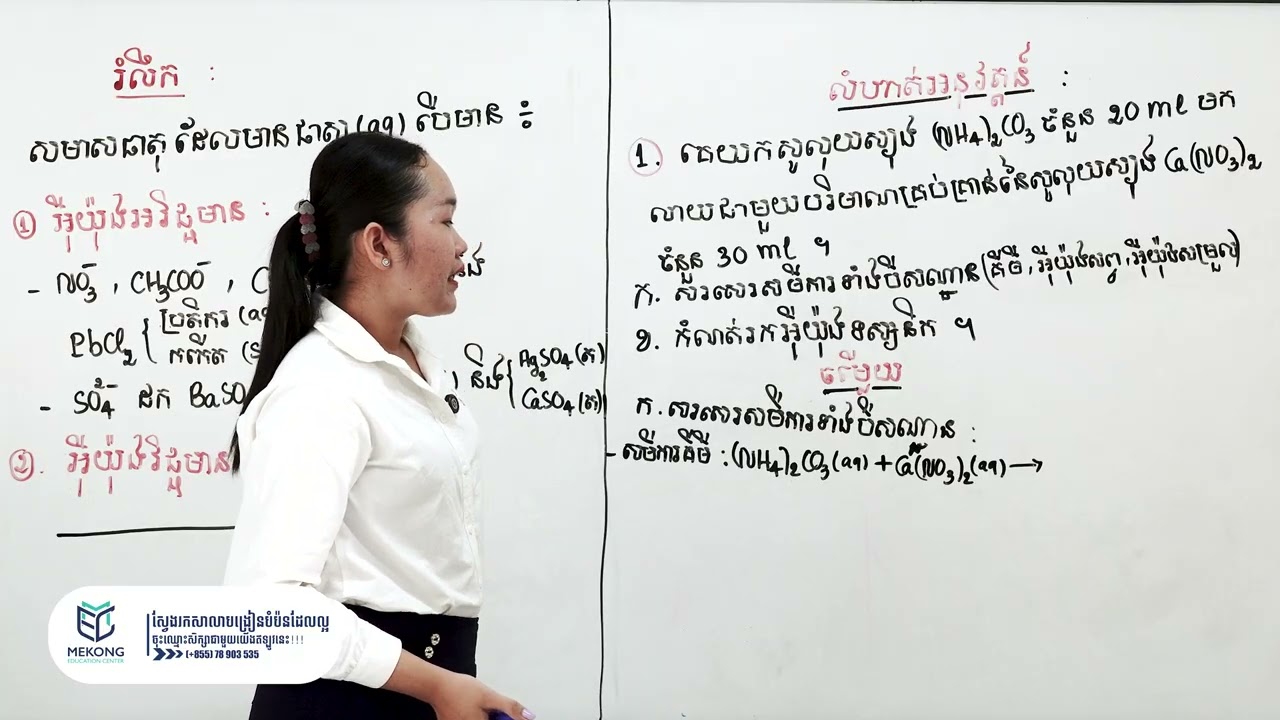 រំលឹក :
សមាសធាតុ ដែលមានផាស (aq) បើមាន ÷
① អ៊ីយ៉ុងអវិជ្ជមាន :
- NO₃⁻ , CH₃COO⁻ , C
PbCl₂ { ប្រតិករ (aq
កកើត (s
- SO₄²⁻ ដក BaSO
និង { Ag₂SO₄
CaSO₄
②. អ៊ីយ៉ុងវិជ្ជមាន
លំហាត់អនុវត្តន៍ :
1. គេយកសូលុយស្យុង (NH₄)₂CO₃ ចំនួន 20 ml មក
លាយជាមួយបរិមាណគ្រប់គ្រាន់នៃសូលុយស្យុង Ca(NO₃)₂
ចំនួន 30 ml ។
ក. សរសេរសមីការទាំងបីសណ្ឋាន (គីមី , អ៊ីយ៉ុងសព្វ , អ៊ីយ៉ុងសម្រួល)
ខ. កំណត់រកអ៊ីយ៉ុងទស្សនិក ។
ចម្លើយ
ក. សរសេរសមីការទាំងបីសណ្ឋាន :
- សមីការគីមី : (NH₄)₂CO₃(aq) + Ca(NO₃)₂(aq) →
MEKONG
EDUCATION CENTER
ស្វែងរកសាលាបង្រៀនបំប៉នដែលល្អ
ចុះឈ្មោះសិក្សាជាមួយយើងឥឡូវនេះ!!!
(+855) 78 903 535